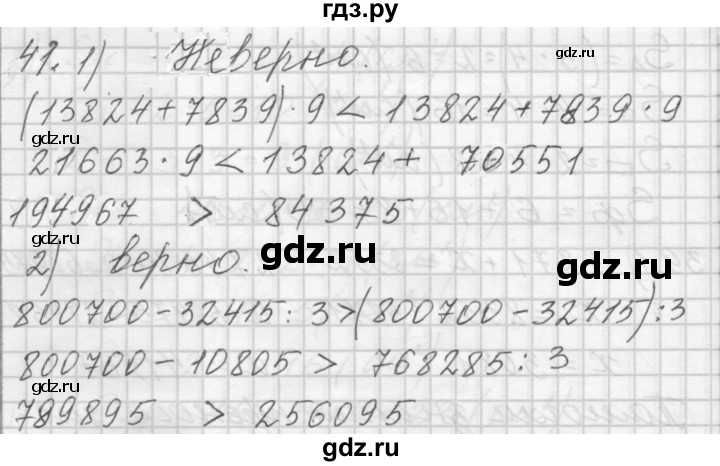 гдз.ру
41. 1) Неверно.
gdz.ru
(13824+7839)·9 < 13824+7839·9
gdz.ru
gdz.ru
21663·9 < 13824+ 70551
194967 > 84375
2) верно.
gdz.ru
gdz.ru
gdz.ru
800700-32415:3>(800700-32415):3
800700-10805 > 768285:3
gdz.ru
gdz.ru
789895 > 256095
gdz.ru